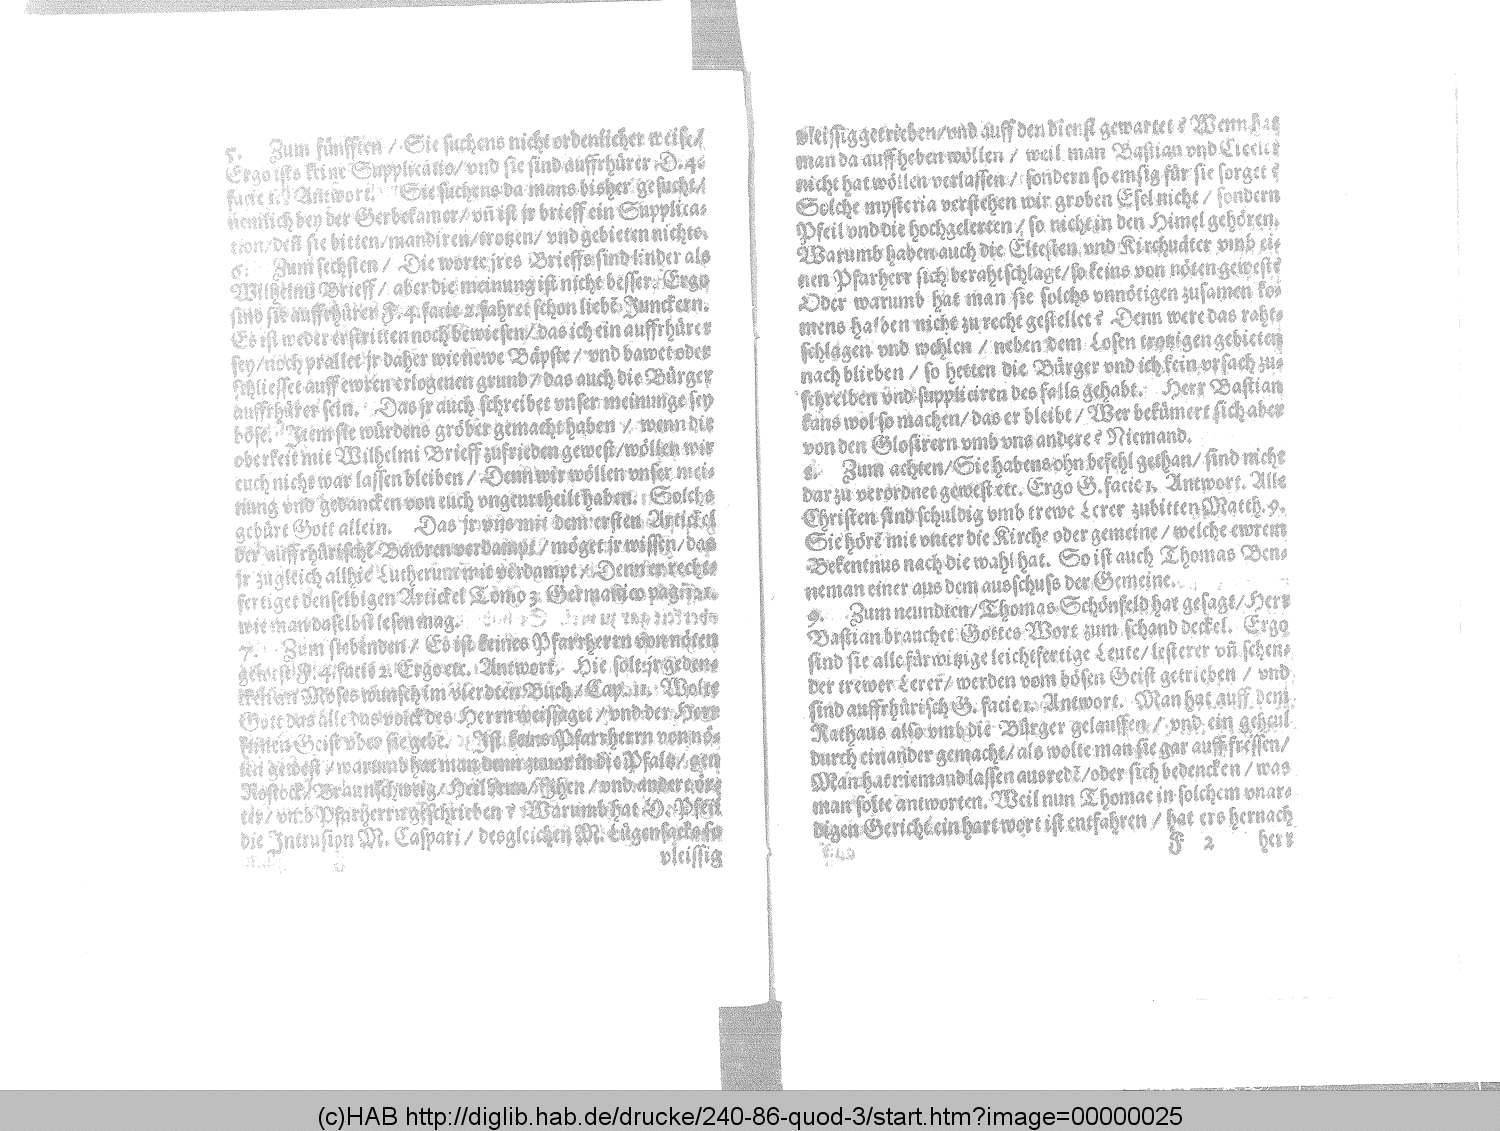 5. Zum fünfften / Sie suchens nicht ordenlicher weise/
Ergo ists keine Supplicatio/ vnd sie sind auffrhürer D. 4.
facie 1. Antwort. Sie suchens da mans bisher gesucht/
nemlich bey der Gerbekamer/ vñ ist jr brieff ein Supplica-
tion/ deñ sie bitten/ mandiren/ trotzen/ vnd gebieten nichts.
6. Zum sechsten / Die worte jres Brieffs sind linder als
Wilhelmi Brieff / aber die meinung ist nicht besser. Ergo
sind sie auffrhürer F. 4. facie 2. fahret schon liebē Junckern.
Es ist weder erstritten noch bewiesen/ das ich ein auffrhürer
sey/ noch prallet jr daher wie newe Bäpste / vnd bawet oder
schliesset auff ewren erlogenen grund / das auch die Bürger
auffrhürer sein. Das jr auch schreibet vnser meinunge sey
böse. Item sie würdens gröber gemacht haben / wenn die
oberkeit mit Wilhelmi Brieff zufrieden gewest/ wöllen wir
euch nicht war lassen bleiben / Denn wir wöllen vnser mei-
nung vnd gedancken von euch vngeurtheilt haben. Solchs
gebürt Gott allein. Das jr vns mit dem ersten Artickel
der auffrhürische Bawren verdampt / möget jr wissen/ das
jr zugleich allhie Lutherum mit verdampt / Denn er recht-
fertiget denselbigen Artickel Tomo 3. Germanico pagina
wie man daselbst lesen mag.
7. Zum siebenden / Es ist keines Pfarrherrn von nöten
gewest F. 4. facie 2. Ergo etc. Antwort. Hie solt jr geden-
cken an Moses wunsch im vierdten Buch/ Cap. 11. Wolte
Gott das alle das volck des Herrn weissaget / vnd der Herr
seinen Geist vber sie gebe. Ist keins Pfarrherrn von nö-
ten gewest / warumb hat man denn zuuor in die Pfalz/ gen
Rostock/ Braunschweig/ vnd andere örte
vmb Pfarherrn geschrieben? Warumb hat D. Pfeil
die Intrusion M. Caspari / desgleichen M. Lügensacks so
vleissig
vleissig getrieben/ vnd auff den dienst gewartet? Wenn hat
man da auffheben wöllen / weil man Bastian vnd Cicelier
nicht hat wöllen verlassen / sondern so emsig für sie sorget?
Solche mysteria verstehen wir groben Esel nicht / sondern
Pfeil vnd die hochgelerten / so nicht in den Himel gehören.
Warumb haben auch die Eltesten vnd Kirchuäter vmb ei-
nen Pfarherr sich berahtschlagt/ so keins von nöten gewest?
Oder warumb hat man sie solchs vnnötigen zusamen ko-
mens halben nicht zu recht gestellet? Denn were das raht-
schlagen vnd wehlen / neben dem Losen trotzigen gebieten
nach blieben / so hetten die Bürger vnd ich kein vrsach zu-
schreiben vnd suppliciren des falls gehabt. Herr Bastian
kans wol so machen/ das er bleibt / Wer bekümert sich aber
von den Glosirern vmb vns andere? Niemand.
8. Zum achten/ Sie habens ohn befehl gethan/ sind nicht
darzu verordnet gewest etc. Ergo G. facie 1. Antwort. Alle
Christen sind schuldig vmb trewe Lerer zubitten Matth. 9.
Sie hörē mit vnter die Kirche oder gemeine / welche ewrem
Bekentnus nach die wahl hat. So ist auch Thomas Ben-
neman einer aus dem ausschuss der Gemeine.
9. Zum neundten/ Thomas Schönfeld hat gesagt/ Herr
Bastian brauchet Gottes Wort zum schand deckel. Ergo
sind sie alle fürwitzige leichtfertige Leute/ lesterer vñ schen-
der trewer Lerer/ werden vom bösen Geist getrieben / vnd
sind auffrhürisch G. facie 1. Antwort. Man hat auff dem
Rathaus also vmb die Bürger gelauffen / vnd ein geheul
durch einander gemacht/ als wolte man sie gar aufffressen/
Man hat niemand lassen ausredē/ oder sich bedencken / was
man solte antworten. Weil nun Thomae in solchem vnar-
digen Gericht ein hart wort ist entfahren / hat ers hernach
F 2 herr
(c)HAB http://diglib.hab.de/drucke/240-86-quod-3/start.htm?image=00000025